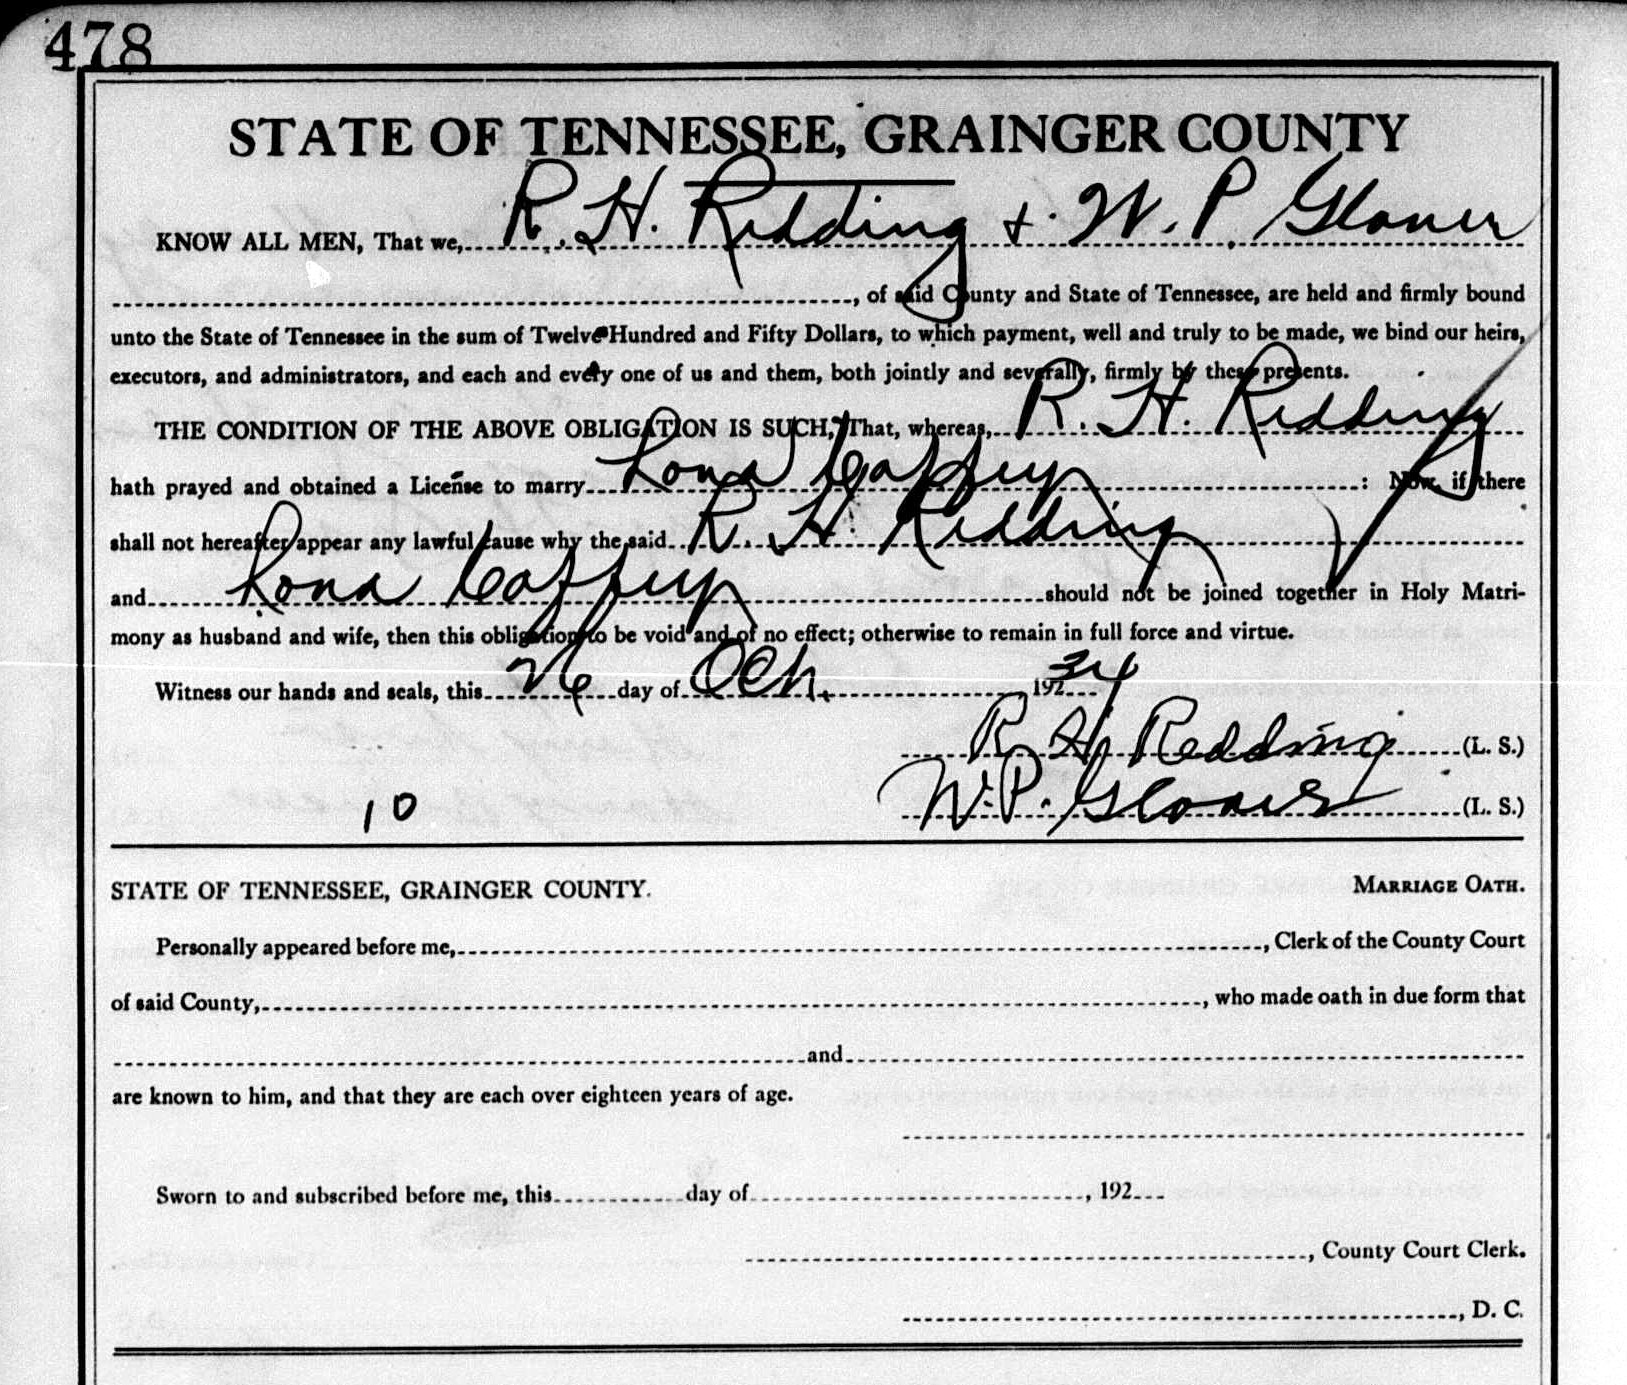 478
STATE OF TENNESSEE, GRAINGER COUNTY
KNOW ALL MEN, That we, R. H. Redding + W. P. Glover
, of said County and State of Tennessee, are held and firmly bound
unto the State of Tennessee in the sum of Twelve Hundred and Fifty Dollars, to which payment, well and truly to be made, we bind our heirs,
executors, and administrators, and each and every one of us and them, both jointly and severally, firmly by these presents.
THE CONDITION OF THE ABOVE OBLIGATION IS SUCH, That, whereas, R. H. Redding
hath prayed and obtained a License to marry Rona Caffey : Now, if there
shall not hereafter appear any lawful cause why the said R. H. Redding
and Rona Caffey should not be joined together in Holy Matri-
mony as husband and wife, then this obligation to be void and of no effect; otherwise to remain in full force and virtue.
Witness our hands and seals, this 26 day of Oct. , 192 34
R H Redding (L. S.)
W. P. Glover (L. S.)
10
STATE OF TENNESSEE, GRAINGER COUNTY. MARRIAGE OATH.
Personally appeared before me, , Clerk of the County Court
of said County, , who made oath in due form that
and
are known to him, and that they are each over eighteen years of age.
Sworn to and subscribed before me, this day of , 192
, County Court Clerk.
, D. C.